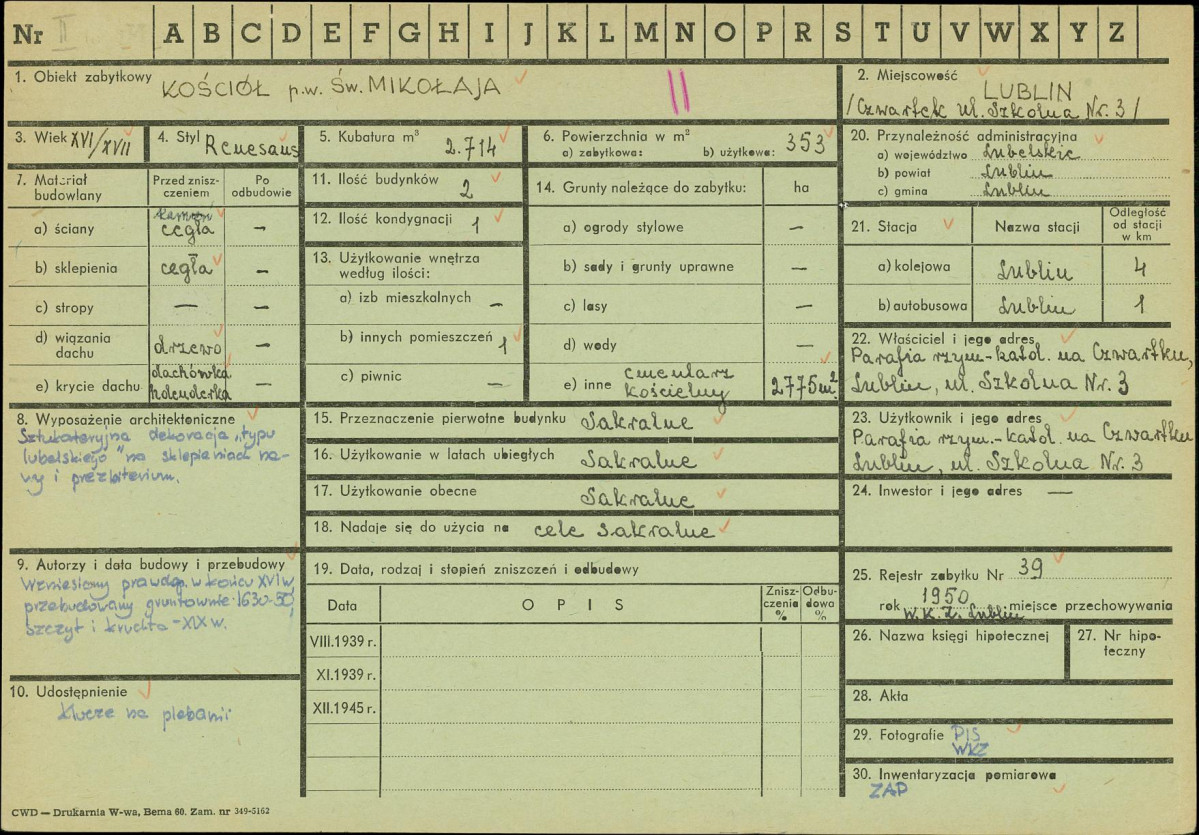 Nr II
A B C D E F G H I J K L M N O P R S T U V W X Y Z
1. Obiekt zabytkowy KOŚCIÓŁ p.w. Św. MIKOŁAJA
II
2. Miejscowość
LUBLIN
/Czwartek ul. Szkolna Nr. 3/
3. Wiek XVI/XVII
4. Styl Renesans
5. Kubatura m³
2.714
6. Powierzchnia w m²
a) zabytkowa: b) użytkowa: 353
20. Przynależność administracyjna
a) województwo Lubelskie
b) powiat Lublin
c) gmina Lublin
7. Materiał budowlany
Przed znisz-
czeniem
Po
odbudowie
a) ściany kamień cegła —
b) sklepienia cegła —
c) stropy — —
d) wiązania
dachu drzewo —
e) krycie dachu dachówka
holenderka —
11. Ilość budynków 2
12. Ilość kondygnacji 1
13. Użytkowanie wnętrza
według ilości:
a) izb mieszkalnych —
b) innych pomieszczeń 1
c) piwnic —
14. Grunty należące do zabytku: ha
a) ogrody stylowe —
b) sady i grunty uprawne —
c) lasy —
d) wody —
e) inne cmentarz
kościelny 2775 m²
21. Stacja Nazwa stacji
Odległość
od stacji
w km
a) kolejowa Lublin 4
b) autobusowa Lublin 1
22. Właściciel i jego adres
Parafia rzym-katol. na Czwartku,
Lublin, ul. Szkolna Nr. 3
8. Wyposażenie architektoniczne
Sztukateryjna dekoracja "typu
lubelskiego" na sklepieniach na-
wy i prezbiterium.
15. Przeznaczenie pierwotne budynku Sakralne
16. Użytkowanie w latach ubiegłych Sakralne
17. Użytkowanie obecne Sakralne
18. Nadaje się do użycia na cele sakralne
23. Użytkownik i jego adres
Parafia rzym.-katol. na Czwartku
Lublin, ul. Szkolna Nr. 3
24. Inwestor i jego adres —
9. Autorzy i data budowy i przebudowy
Wzniesiony prawdop. w końcu XVI w,
przebudowany gruntownie 1630-50,
szczyt i kruchta - XIX w.
10. Udostępnienie
klucze na plebanii
19. Data, rodzaj i stopień zniszczeń i odbudowy
Data OPIS
Znisz-
czenia
%
Odbu-
dowa
%
VIII.1939 r.
XI.1939 r.
XII.1945 r.
25. Rejestr zabytku Nr 39
rok 1950 miejsce przechowywania
W.K.Z. Lublin
26. Nazwa księgi hipotecznej
27. Nr hipo-
teczny
28. Akta
29. Fotografie PIS
WKZ
30. Inwentaryzacja pomiarowa
ZAP
CWD — Drukarnia W-wa, Bema 60. Zam. nr 349-5162